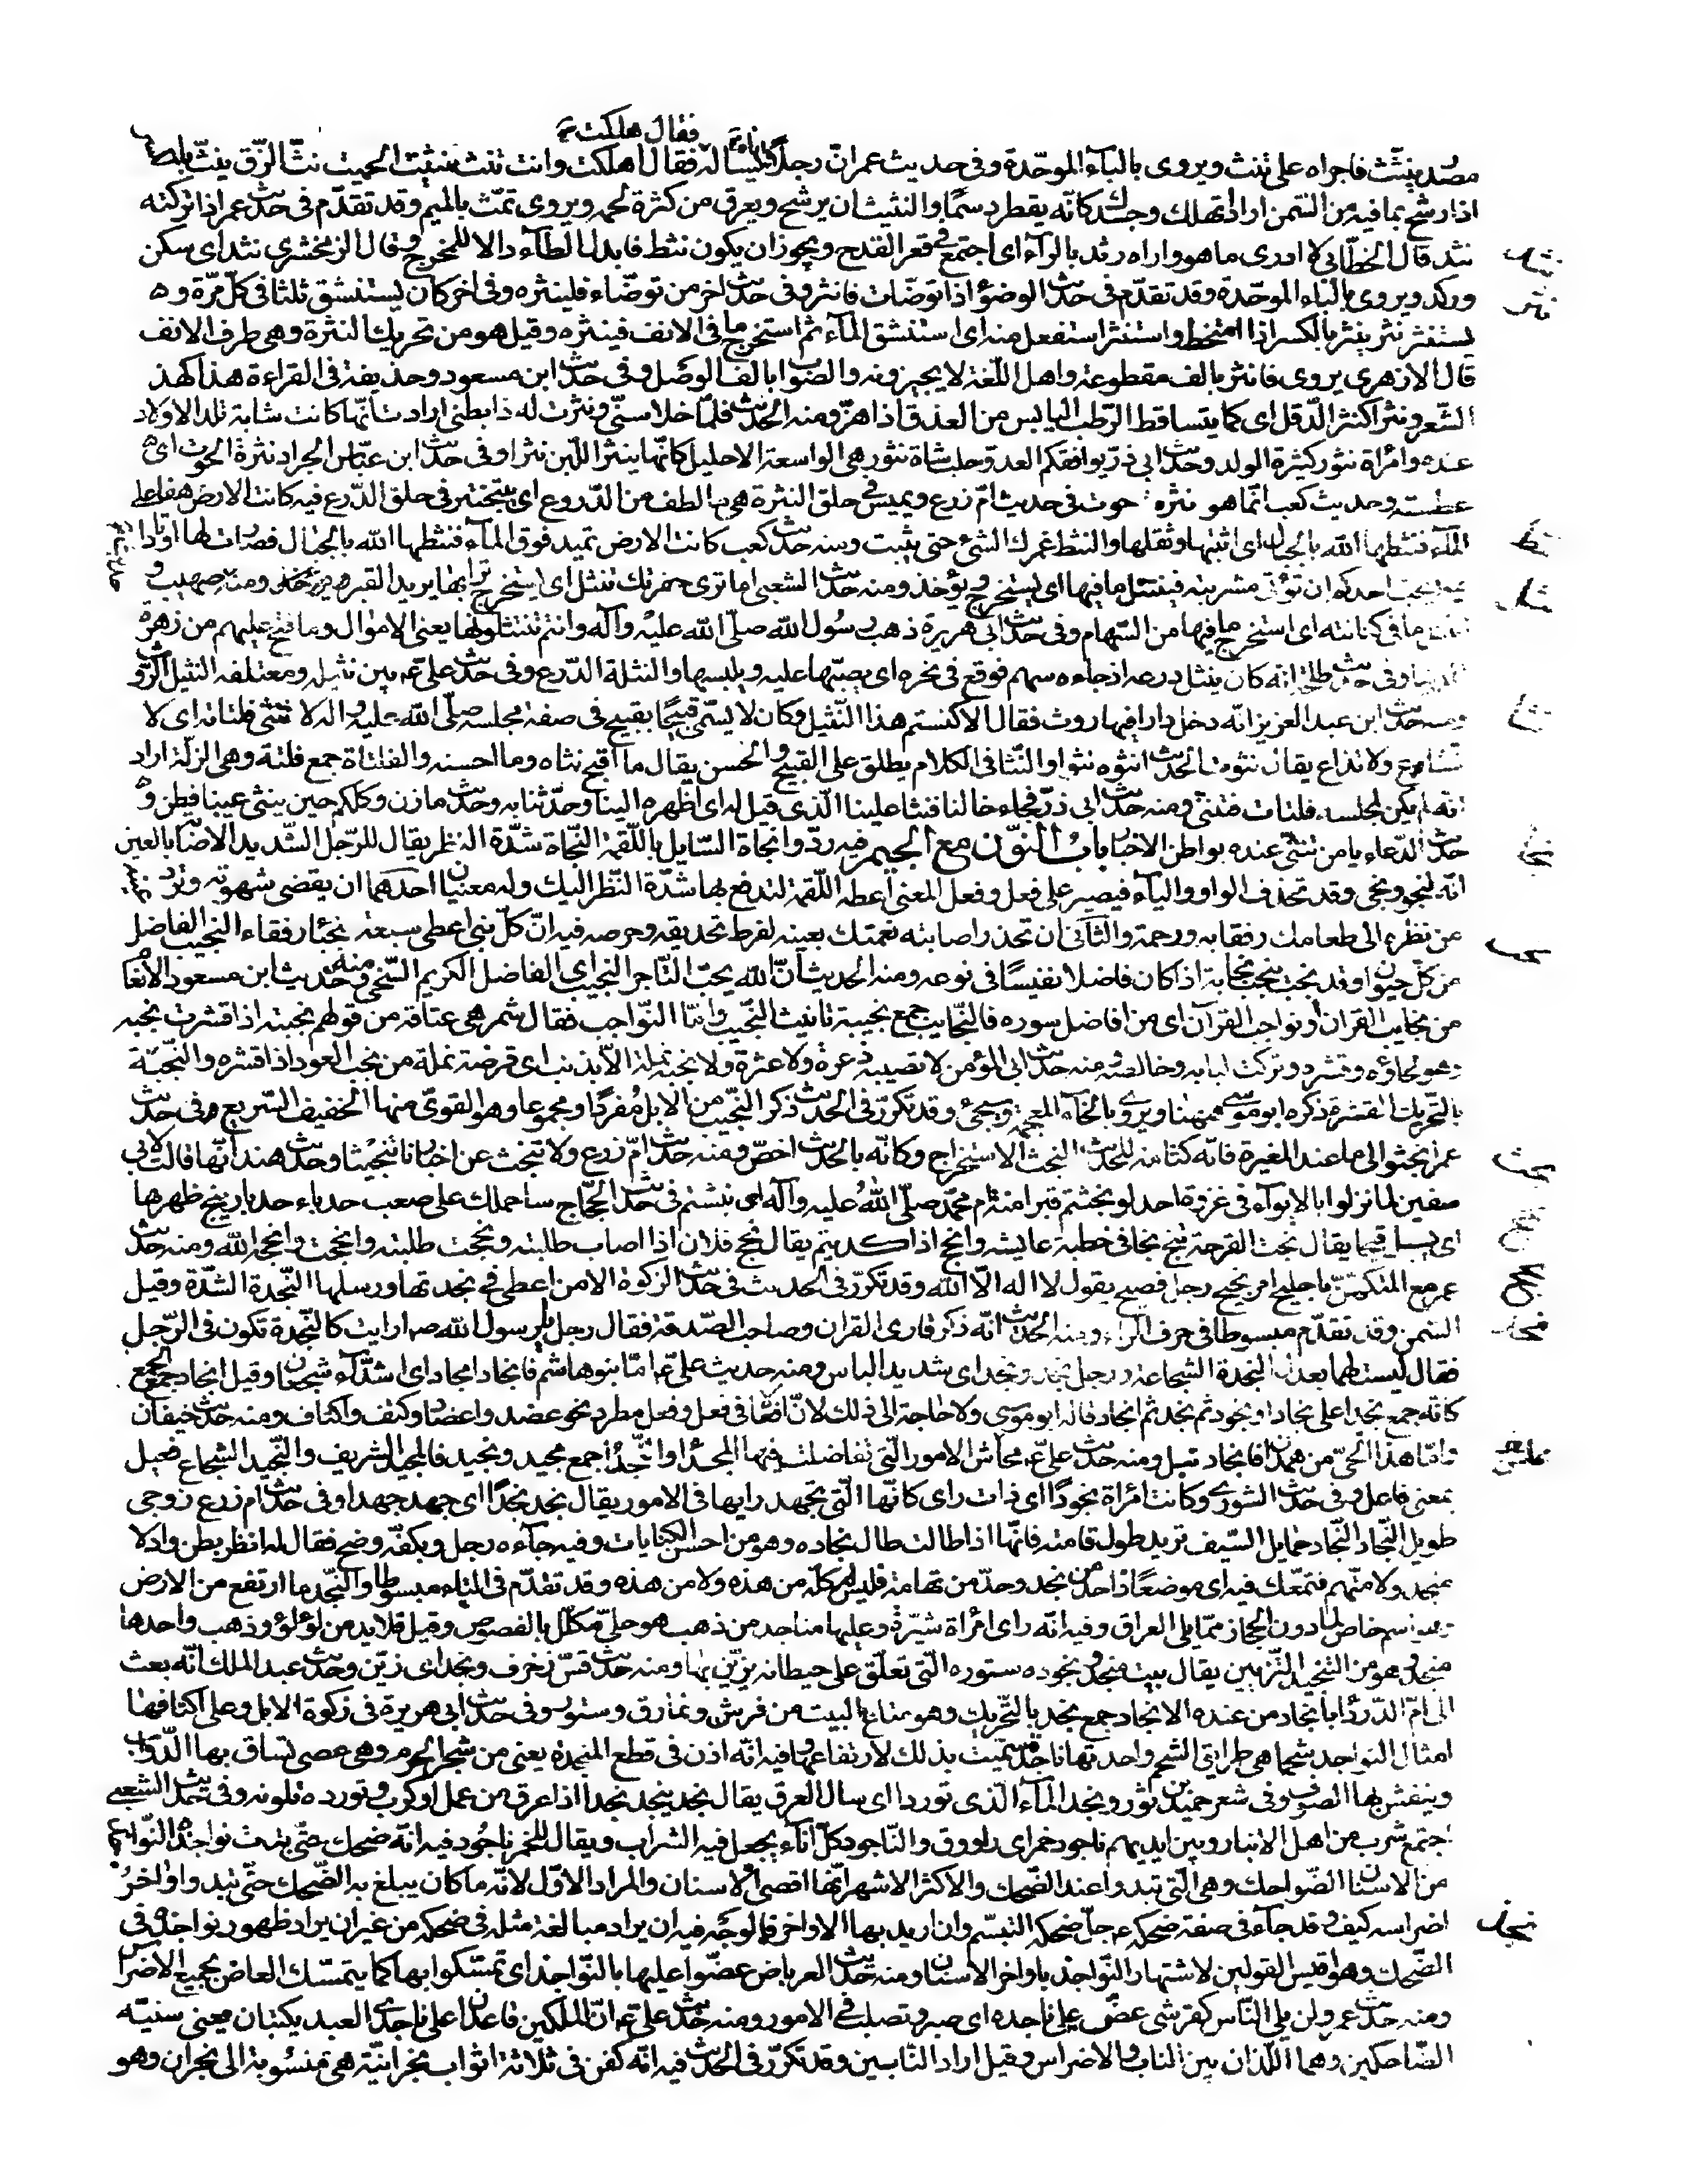 فقال هلكت
مصدر ينثّ فاجراه على تنث ويروى بالبآء الموحّدة وفى حديث عمر انّ رجلا اتاه يسأله فقال هلكت وانت تنث نثيث الحميت نثّ الزّق ينثّ بالكسر
اذا رشح بما فيه من السّمن اراد اتهلك وجسدك كانّه يقطر دسمًا والنثيث ان يرشح ويعرق من كثرة لحمه ويروى تمّث بالميم وقد تقدّم فى حديث عمر اذا تركته
نثد قال الخطّابى لا ادرى ما هو واراه رثد بالرآء اى اجتمع فى قعر القدح ويجوز ان يكون نثط فابدل الطآء دالا للمخرج وقال الزمخشرى نثد اى سكن
وركد ويروى بالبآء الموحّدة وقد تقدّم فى حديث الوضوء اذا توضّات فانثر وفى حديث اخر من توضّاء فلينثره وفى اخر كان يستنشق ثلثا فى كلّ مرّة
يستنثر نثر ينثر بالكسر اذا امتخط واستنثر استفعل منه اى استنشق المآء ثم استخرج ما فى الانف فينثره وقيل هو من تحريك النثرة وهى طرف الانف
قال الازهرى يروى فانثر بالف مقطوعة واهل اللّغة لا يجيزونه والصّواب بالف الوصل وفى حديث ابن مسعود وحذيفة فى القراءة هذا كهذ
الشّعر ونثرا كنثر الدّقل اى كما يتساقط الرّطب اليابس من العذق اذا هزّ ومنه الحديث فلمّا خلا سنّى ونثرت له ذا بطنى ارادت انّها كانت شابة تلد الاولاد
عنده وامرأة نثور كثيرة الولد وحديث ابى ذرّ يوافقكم العدوّ حلب شاة نثور هى الواسعة الاحليل كانّها ينثر اللّبن نثرا وفى حديث ابن عبّاس الجراد نثرة الحوت اى
عطسته وحديث كعب انّما هو نثره حوت فى حديث امّ زرع ويميس فى حلق النثرة هى ما لطف من الدّروع اى يتبختر فى حلق الدّرع فيه كانت الارض هفا على
المآء فنثطها الله بالجبال اى اثبتها وثقلها والنثط غمرك الشئ حتى يثبت ومنه حديث كعب كانت الارض تميد فوق المآء فنثطها الله بالجبال فصارت لها اوتادا
فيه ايحب احدكم ان تؤتى مشربته فينتثل ما فيها اى يستخرج ويؤخذ ومنه حديث الشعبى اما ترى حفرتك تنثل اى يستخرج ترابها يريد القبر ومنه حديث صهيب و
ما فى كنانته اى استخرج ما فيها من السّهام وفى حديث ابى هريرة ذهب رسول الله صلّى الله عليه وآله وانتم تنتثلونها يعنى الاموال وما فتح عليهم من زهرة
الدنيا وفى حديث طلحة انّه كان ينثل درعه اذ جاءه سهم فوقع فى نحره اى يصبّها عليه ويلبسها والنثلة الدّرع وفى حديث علىّ ع بين نثيله ومعتلفه النثيل الرّوث
ومنه حديث ابن عبد العزيز انّه دخل دارا فيها روث فقال الا كنستم هذا النّثيل وكان لا يسمّى قبيحًا بقبيح فى صفة مجلسه صلّى الله عليه واله لا تنثى فلتاته اى لا
تشاع ولا تذاع يقال نثوت الحديث انثوه نثوا والنّثا فى الكلام يطلق على القبيح والحسن يقال ما اقبح نثاه وما احسنه والفلتات جمع فلتة وهى الزلّة اراد
انّه لم يكن لمجلسه فلتات فتنثى ومنه حديث ابى ذرّ فجاء خالنا فنثا علينا الّذى قيل له اى اظهره الينا وحدّثنا به وحديث مازن وكلكم حين ينثى عيبنا فطن و
حديث الدّعاء يا من تنثى عنده بواطن الاخبار باب النّون مع الجيم فيه ردّوا نجاة السّايل باللّقمة النّجاة شدّة النظر يقال للرّجل الشّديد الاصابة بالعين
انّه لنجو ونجئ وقد تحذف الواو واليآء فيصير على فعل وفعل المعنى اعطه اللّقمة لتدفع بها شدّة النّظر اليك وله معنيان احدهما ان يقضى شهوته وتردّ
عن نظره الى طعامك رفقا به ورحمة والثّانى ان تحذر اصابته نعمتك بعينه لفرط تحديقه وحرصه فيه انّ كلّ نبىّ اعطى سبعة نجبآء رفقاء النجيب الفاضل
من كلّ حيوان وقد نجب ينجب نجابة اذا كان فاضلا نفيسًا فى نوعه ومنه الحديث انّ الله يحبّ التّاجر النجيب اى الفاضل الكريم السّخى ومنه حديث ابن مسعود الانعام
من نجايب القران او نواجب القرآن اى من افاضل سوره فالنجايب جمع نجيبة تانيث النّجيب وامّا النّواجب فقال شمر هى عتاقه من قولهم نجبته اذا قشرت نجبه
وهو لحاؤه وقشره وتركت لبابه وخالصه ومنه حديث ابىّ المؤمن لا تصيبه ذعرة ولا عثرة ولا نجبة نملة الاّ بذنب اى قرصة نملة من نجب العود اذا قشره والنّجبة
بالتّحريك القشرة ذكره ابو موسى هيهنا ويروى بالخآء المعجمة وسيجئ وقد تكرّر فى الحديث ذكر النّجيب من الابل مفردًا ومجموعا وهو القوىّ منها الخفيف السّريع وفى حديث
عمر انجثوا الى ما عند المغيرة فانّه كتامة للحديث النجث الاستخراج وكانّه بالحديث اخصّ ومنه حديث امّ زرع ولا تنجث عن اخبارنا تنجيثا وحديث هند انّها قالت لابى
سفين لما نزلوا بالابوآء فى غزوة احد لو نجثتم قبر امنة امّ محمّد صلّى الله عليه وآله اى نبشتم فى حديث الحجّاج ساحملك على صعب حدباء حدبار ينجّ ظهرها
اى يسيل قيحا يقال نجّت القرحة تنجّ نجّا فى خطبة عايشه وانجح اذ اكديتم يقال نجح فلان اذا اصاب طلبته ونجحت طلبته وانجحت وانجحه الله ومنه حديث
عمر مع المتكهّن يا جليح امر نجيح رجل فصيح يقول لا اله الاّ الله وقد تكرّر فى الحديث فى حديث الزكوة الا من اعطى فى نجدتها ورسلها النّجدة الشدّة وقيل
السّمن وقد تقدّم مبسوطا فى حرف الرّاء ومنه الحديث انّه ذكر قارئ القران وصاحب الصّدقة فقال رجل يا رسول الله ص ارايت كالنّجدة تكون فى الرّجل
فقال ليست لهما بعدل النّجدة الشجاعة ورجل نجد ونجد اى شديد الباس ومنه حديث علىّ ع امّا بنو هاشم فانجاد امجاد اى اشدّآء شجعان وقيل انجاد جمع الجمع
كانّه جمع نجدا على نجاد او نجود ثم نجد ثم انجاد قاله ابو موسى ولا حاجة الى ذلك لانّ افعالا فى فعل وفعل مطرد نحو عضد واعضاد وكتف واكتاف ومنه حديث خيفان
وامّا هذا الحىّ من همدان فانجاد بسل ومنه حديث علىّ ع محاسن الامور الّتى تفاضلت فيها المجدآء والنّجدآء جمع مجيد ونجيد فالمجيد الشريف والنّجيد الشجاع فعيل
بمعنى فاعل وفى حديث الشورى وكانت امرأة نجودًا اى ذات راى كانّها الّتى تجهد رايها فى الامور يقال نجد نجدًا اى جهد جهدا وفى حديث امّ زرع زوجى
طويل النّجاد النّجاد حمايل السّيف تريد طول قامته فانّها اذا طالت طال نجاده وهو من احسن الكنايات وفيه جآءه رجل وبكفّه وضح فقال له انظر بطن واد لا
منجد ولا متهم فتمعّك فيه اى موضعًا ذا حدّ من نجد وحدّ من تهامة فليس كلّه من هذه ولا من هذه وقد تقدّم فى التآء مبسوطا والنّجد ما ارتفع من الارض
وهو اسم خاص لما دون الحجاز ممّا يلى العراق وفيه انّه راى امرأة شيّرة وعليها مناجد من ذهب هو حلىّ مكلّل بالفصوص وقيل قلايد من لؤلؤ وذهب واحدها
منجد وهو من التنجيد التّزيين يقال بيت منجد ونجوده ستوره الّتى تعلّق على حيطانه يزيّن بها ومنه حديث قسّ زخرف ونجد اى زيّن وحديث عبد الملك انّه بعث
الى امّ الدّردآء بانجاد من عنده الانجاد جمع نجد بالتّحريك وهو متاع البيت من فرش ونمارق وستور وفى حديث ابى هريرة فى زكوة الابل وعلى اكتافها
امثال النواجد شحما هى طرايق الشّحم واحدتها ناجدة سمّيت بذلك لارتفاعها وفيه انّه اذن فى قطع المنجدة يعنى من شجر الحرم وهى عصى تساق بها الدّوابّ
وينفش بها الصّوف وفى شعر حميد بن ثور ونجد المآء الّذى تورّدا اى سال العرق يقال نجد ينجد نجدا اذا عرق من عمل او كرب وتورّده تلونه وفى حديث الشعبى
اجتمع شرب من اهل الانبار وبين ايديهم ناجود خمر اى راووق والنّاجود كلّ انآء يجعل فيه الشّراب ويقال للخمر ناجود فيه انّه ضحك حتّى بدت نواجذه النّواجذ
من الاسنان الضّواحك وهى الّتى تبدو عند الضّحك والاكثر الاشهر انّها اقصى الاسنان والمراد الاوّل لانّه ما كان يبلغ به الضّحك حتّى تبدو اواخر
اضراسه كيف وقد جآء فى صفة ضحكه ع جلّ ضحكه التبسّم وان اريد بها الاواخر فالوجه فيه ان يراد مبالغة مثله فى ضحكه من غير ان يراد ظهور نواجذه فى
الضّحك وهو اقيس القولين لاشتهار النّواجذ باواخر الاسنان ومنه حديث العرباض عضّوا عليها بالنّواجذ اى تمسّكوا بها كما يتمسّك العاض بجميع الاضراس
ومنه حديث عمر ولن يلى النّاس كقرشى عضّ على ناجذه اى صبر وتصلب فى الامور ومنه حديث علىّ ع انّ الملكين قاعدان على ناجذى العبد يكتبان يعنى سنيّه
الضّاحكين وهما اللّذان بين الناب والاضراس وقيل اراد النّابين وقد تكرّر فى الحديث فيه انّه كفن فى ثلاثة اثواب نجرانيّة هى منسوبة الى نجران وهو